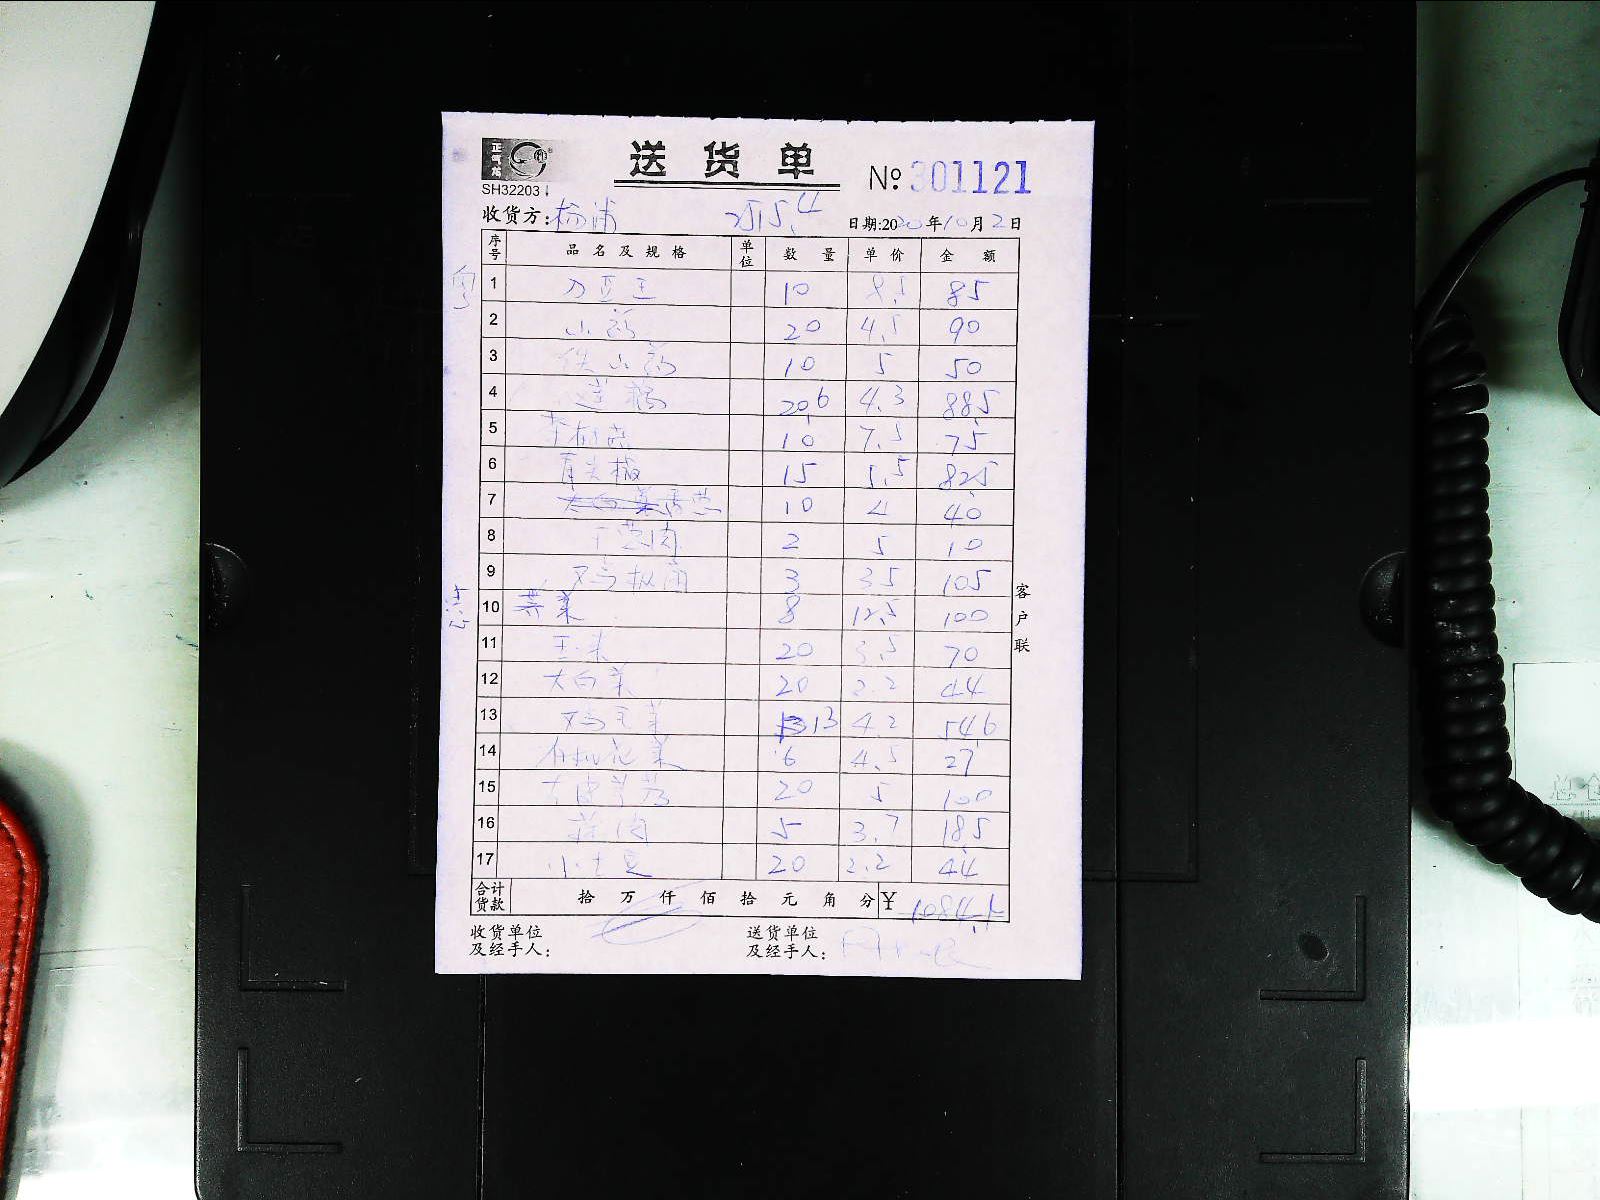 正气龙
SH32203
送货单
№ 301121
收货方: 杨浦
日期:2020年10月2日
序号 品名及规格 单位 数量 单价 金额
1 刀豆王 10 8.5 85
2 山药 20 4.5 90
3 铁山药 10 5 50
4 莲藕 20.6 4.3 88.5
5 茶树菇 10 7.5 75
6 青尖椒 15 5.5 82.5
7 香芋 10 4 40
8 2 5 10
9 鸡枞菌 3 35 105
10 荠菜 8 12.5 100
11 玉米 20 3.5 70
12 大白菜 20 2.2 44
13 鸡毛菜 13 4.2 54.6
14 有机花菜 6 4.5 27
15 去皮芋艿 20 5 100
16 5 3.7 18.5
17 小土豆 20 2.2 44
合计货款 拾 万 仟 佰 拾 元 角 分 ¥ 1084.1
客户联
收货单位及经手人:
送货单位及经手人: